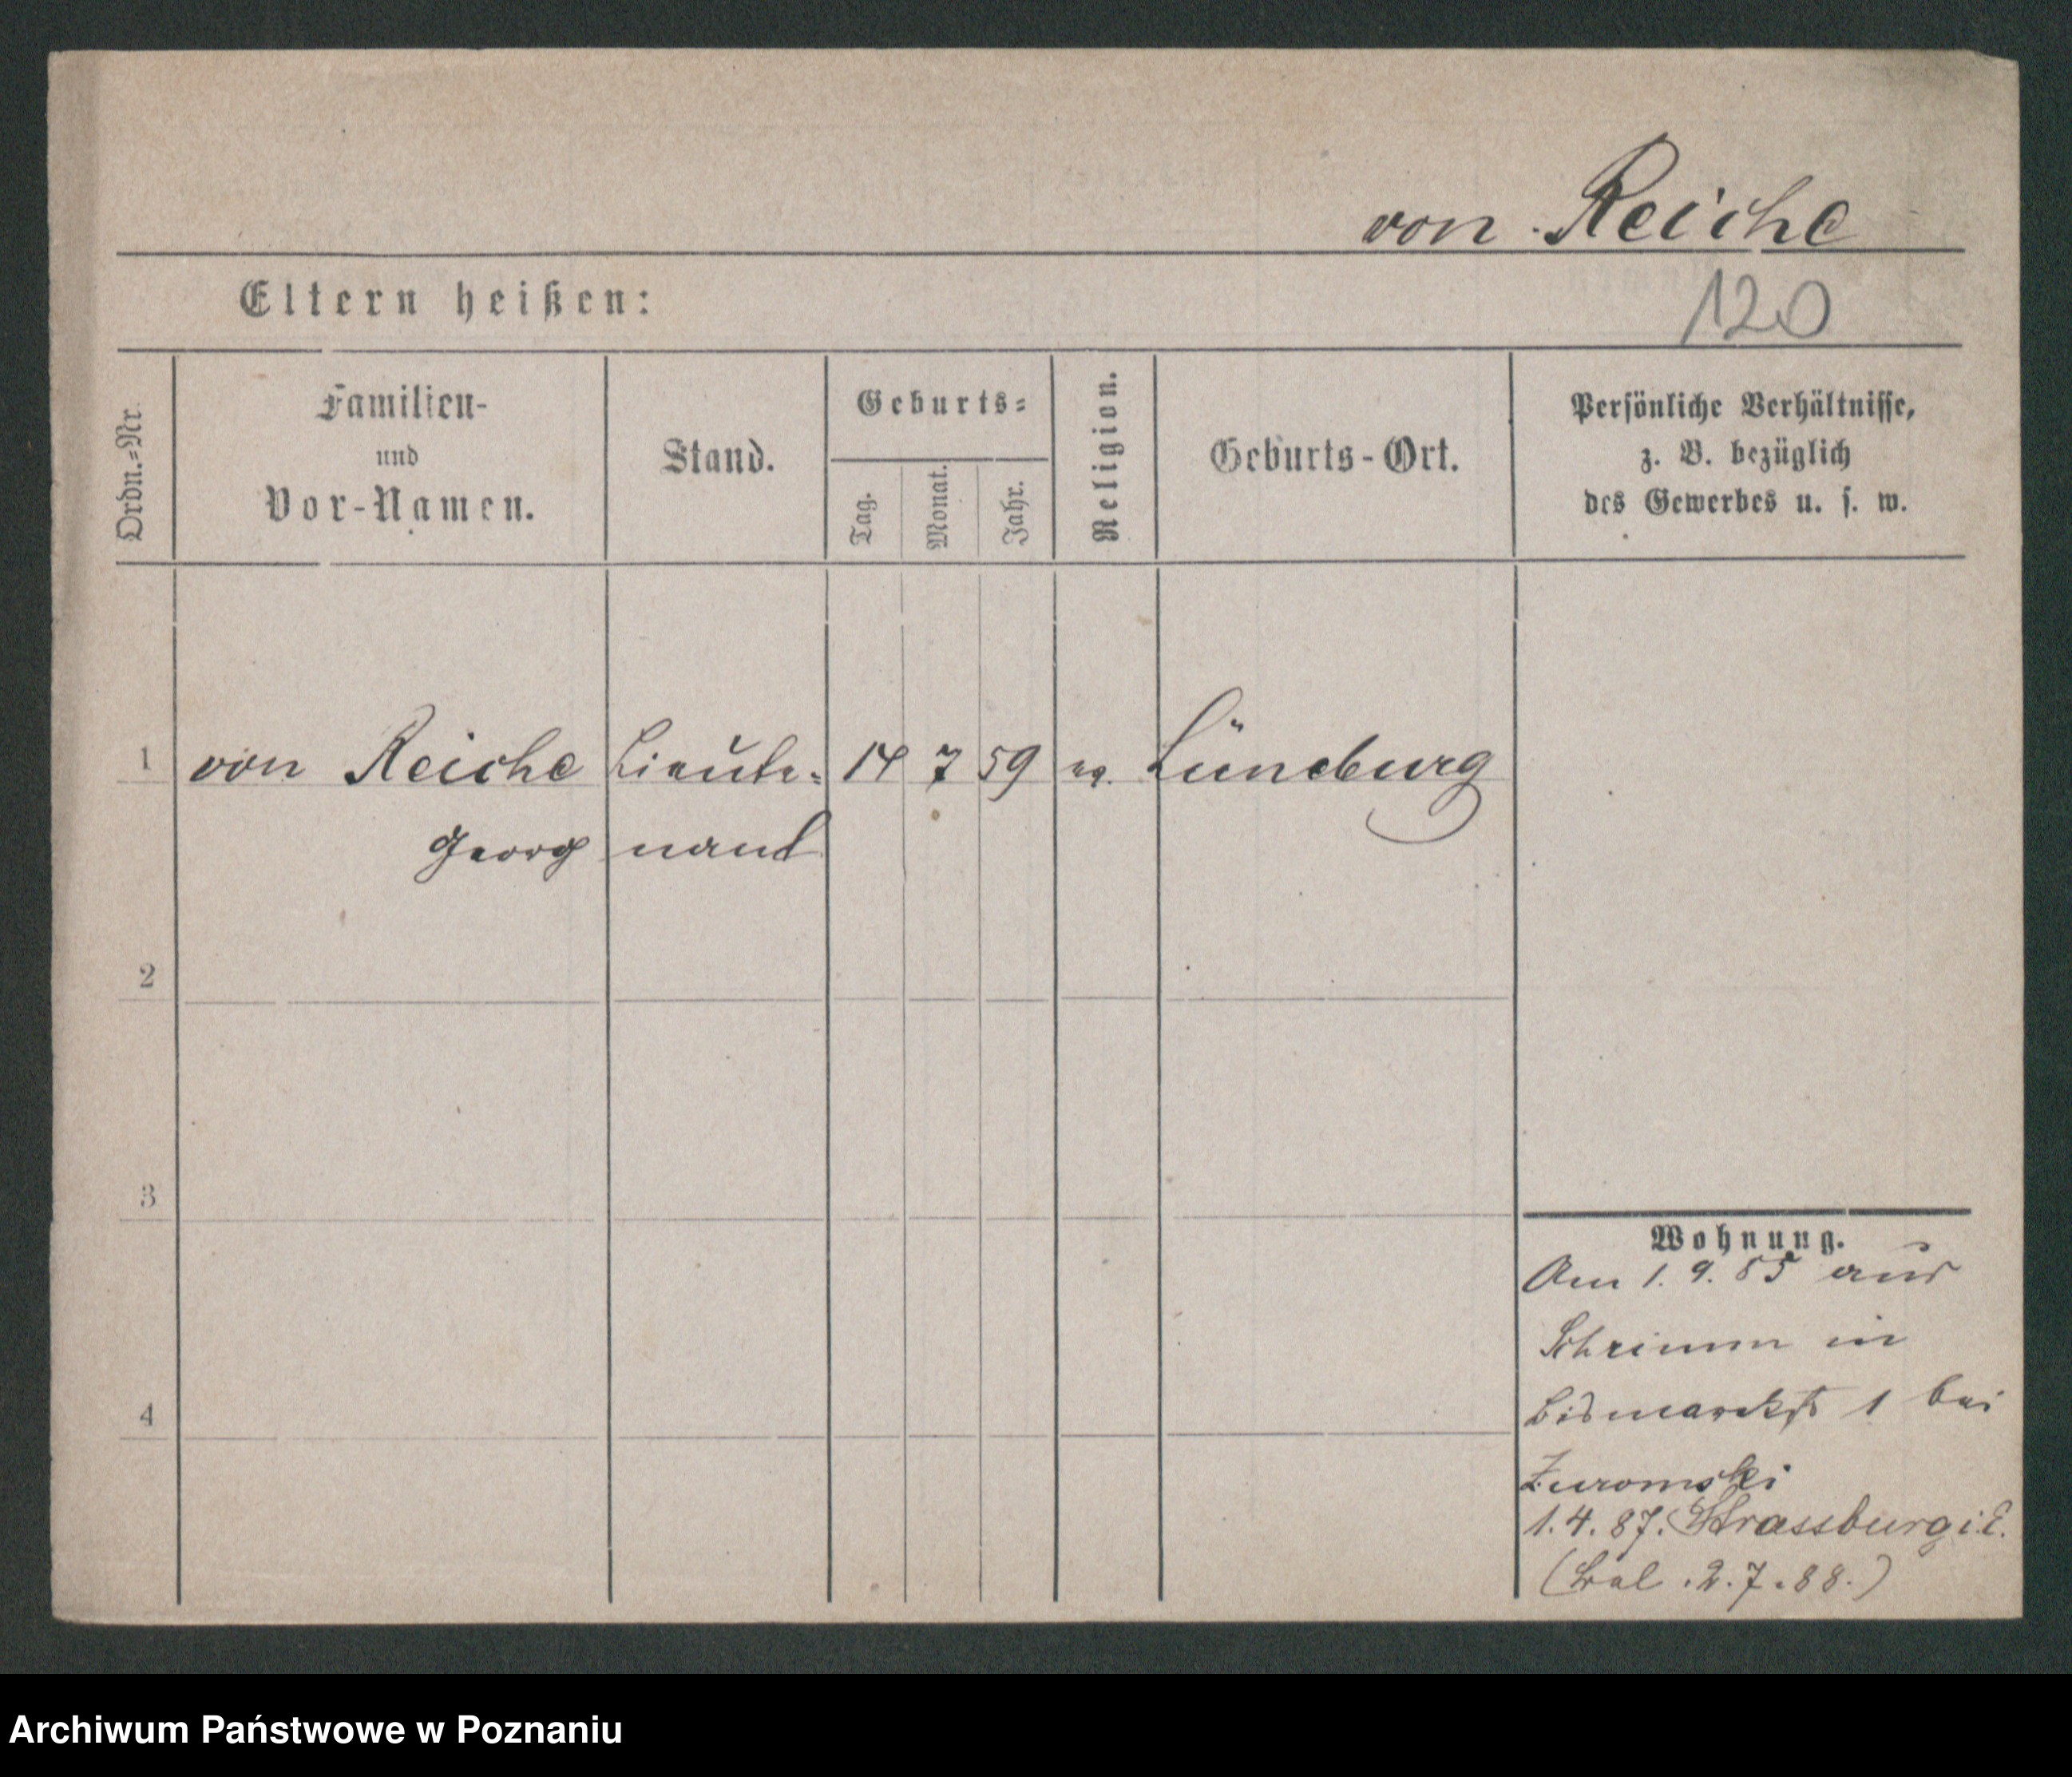 von Reiche
Eltern heißen:
120
Ordn.=Nr.
Familien-
und
Vor-Namen.
Stand.
Geburts=
Tag.
Monat.
Jahr.
Religion.
Geburts-Ort.
Persönliche Verhältnisse,
z. B. bezüglich
des Gewerbes u. s. w.
1 von Reiche Lieute= 14 7 59 ev. Lüneburg
Georg nant
2
3
4
Wohnung.
Am 1. 9. 85 aus
Schrimm in
Bismarckst 1 bei
Zuromski
1. 4. 87. Strassburg i. E.
2. 7. 88.)
Archiwum Państwowe w Poznaniu